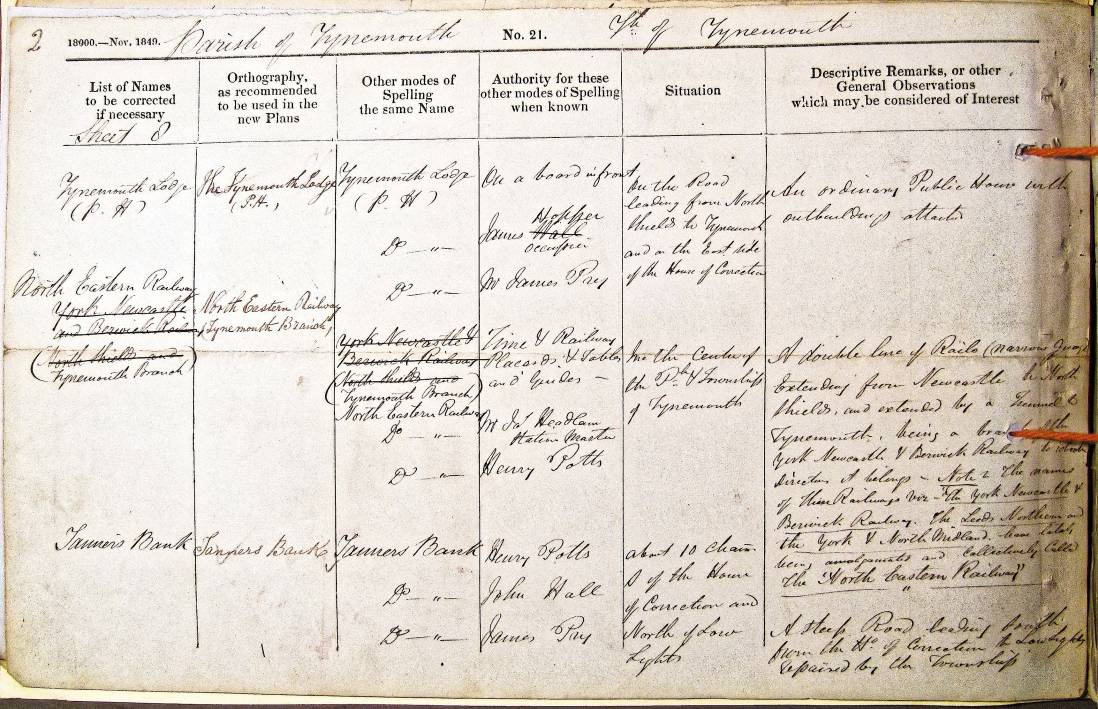 2
18000.—Nov. 1849.
Parish of Tynemouth
No. 21.
Tp of Tynemouth
List of Names
to be corrected
if necessary
Orthography,
as recommended
to be used in the
new Plans
Other modes of
Spelling
the same Name
Authority for these
other modes of Spelling
when known
Situation
Descriptive Remarks, or other
General Observations
which may be considered of Interest
Sheet 8
Tynemouth Lodge
(P. H)
The Tynemouth Lodge
(P.H.)
Tynemouth Lodge
(P. H)
Do — „ —
Do — „ —
On a board in front
Hopper
James Hall
occupier
Mr James Pry
On the Road
leading from North
Shields to Tynemouth
and on the East side
of the House of Correction
An ordinary Public House with
outbuildings attached
North Eastern Railway
York Newcastle
and Berwick Rail
(North Shields and
Tynemouth Branch)
North Eastern Railway
(Tynemouth Branch)
York Newcastle &
Berwick Railway
(North Shields and
Tynemouth Branch)
North Eastern Railway
Do — „ —
Do — „ —
Time & Railway
Placards & Tables
and Guides —
Mr Js Headlam
Station Master
Henry Potts
In the Center of
the Ph & Township
of Tynemouth
A double line of Rails (narrow Guage)
Extending from Newcastle to North
Shields, and extended by a Tunnel to
Tynemouth, being a branch of the
York Newcastle & Berwick Railway to whose
directors it belongs — Note 2 The names
of these Railways viz - "The York Newcastle &
Berwick Railway. The Leeds Northern and
the York & North Midland. have lately
being amalgamated and collectively called
The "North Eastern Railway"
Tanners Bank
Tanners Bank
Tanners Bank
Do — „ —
Do — „ —
Henry Potts
John Hall
James Pry
about 10 chains
S of the House
of Correction and
North of Low
Lights
A steep Road leading South
from the Ho. of Correction to Low Lights
repaired by the Township